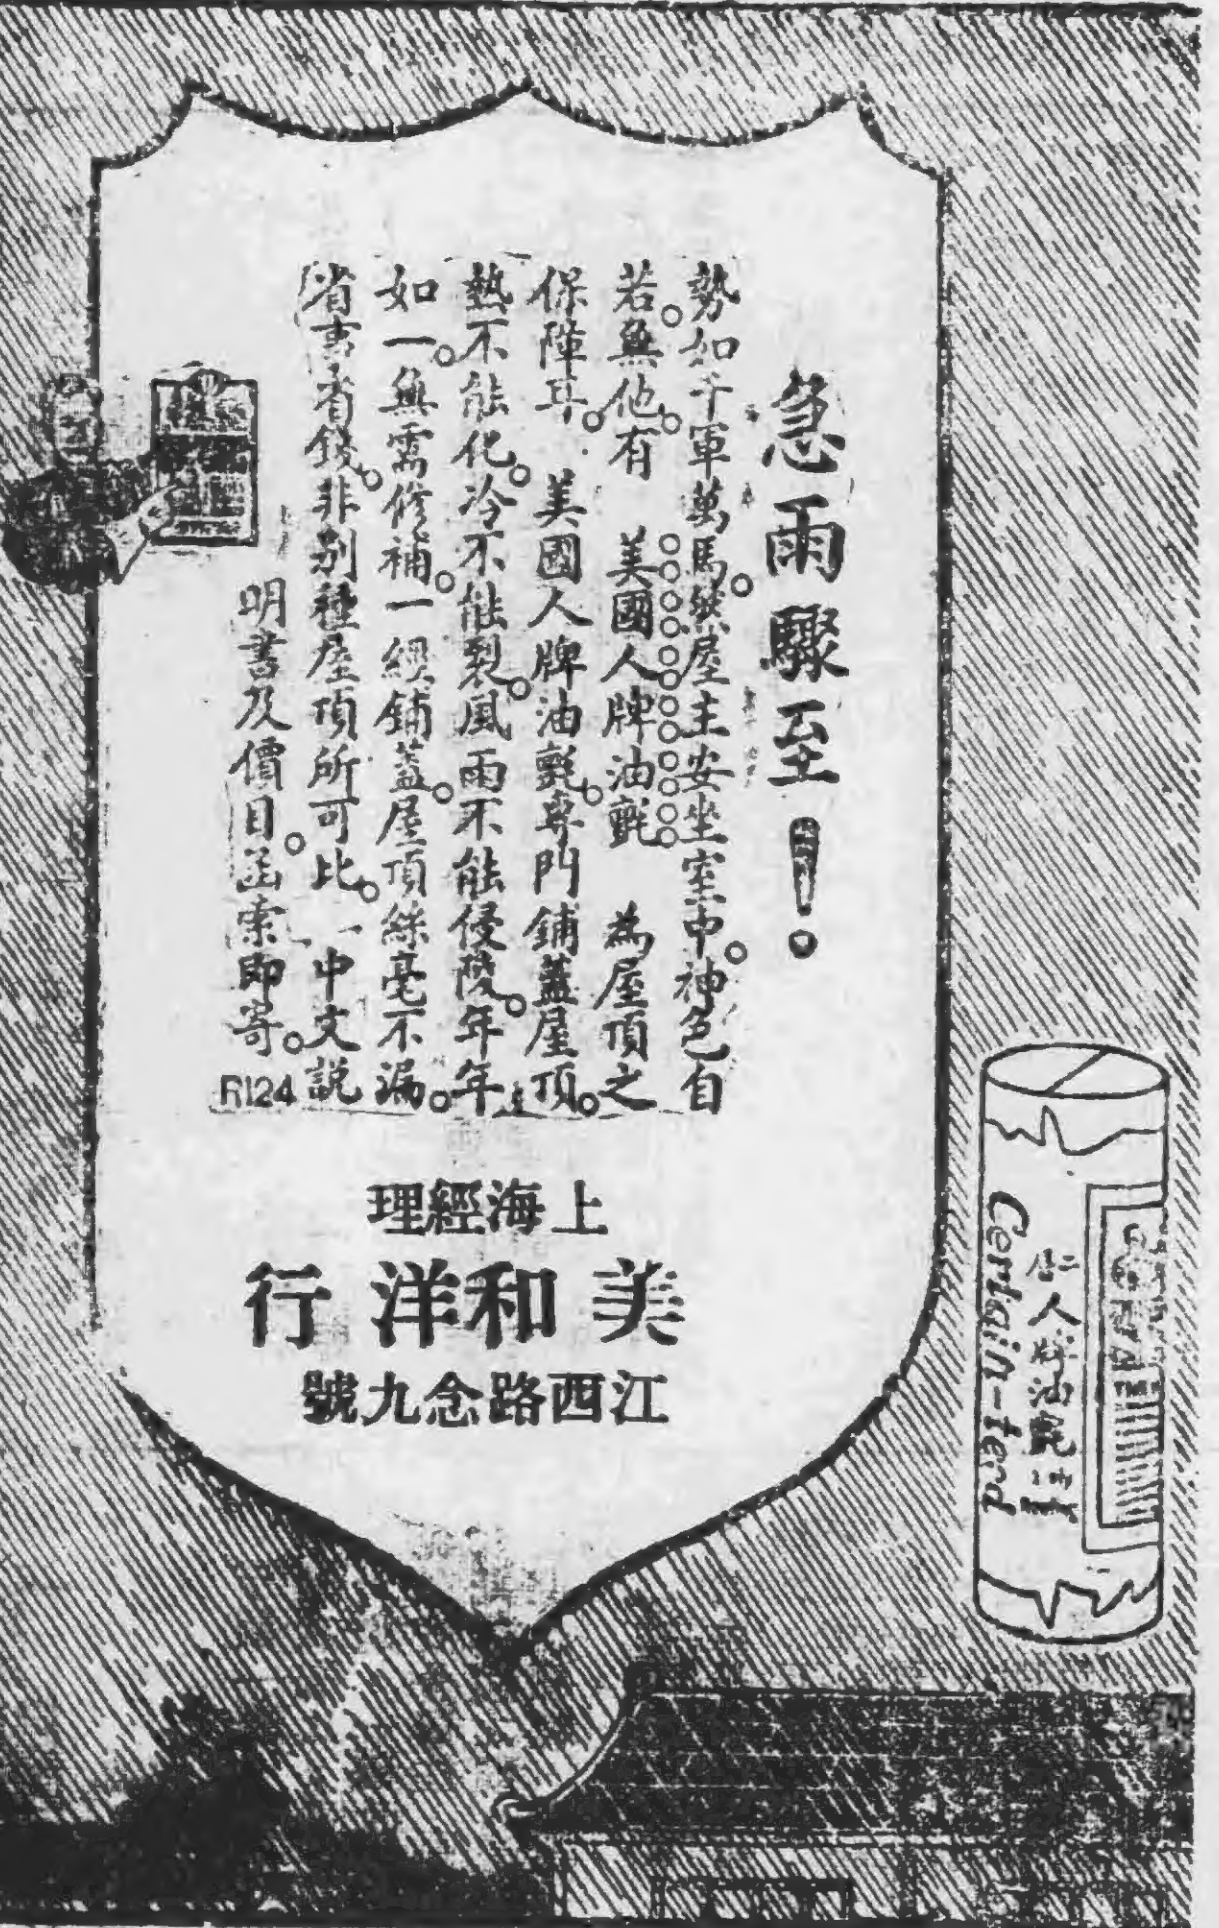 急雨驟至！
勢如千軍萬馬。然屋主安坐室中。神色自
若。無他。有 美國人牌油氈 為屋頂之
保障耳。 美國人牌油氈。專門鋪蓋屋頂。
熱不能化。冷不能裂。風雨不能侵陵。年年
如一。無需修補。一經鋪蓋。屋頂絲毫不漏。
省事省錢。非別種屋頂所可比。中文説
明書及價目。函索即寄。
R124
上海經理
美和洋行
江西路念九號
人牌油氈
Certain-teed